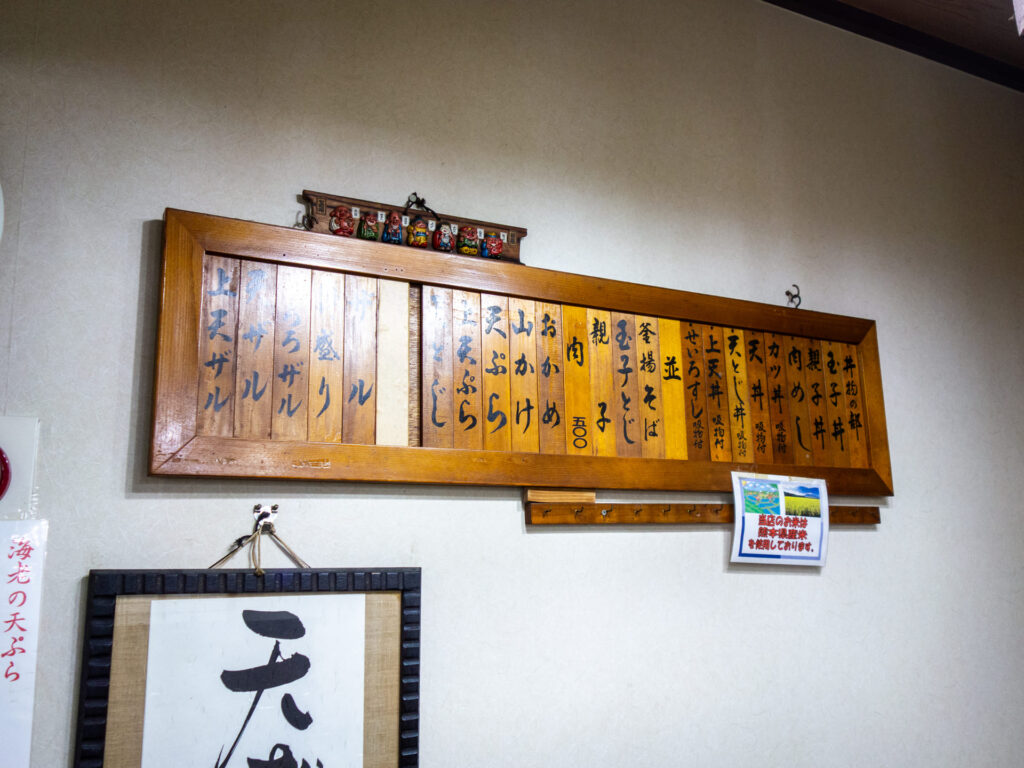 丼物の部
玉子丼
親子丼
肉めし
カツ丼 吸物付
天丼 吸物付
天とじ丼 吸物付
上天丼 吸物付
せいろすし 吸物付
並
釜揚そば
玉子とじ
親子
肉 五〇〇
おかめ
山かけ
天ぷら
上天ぷら
とじ
ル
盛り
ザル
ザル
上天ザル
当店のお米は
熊本県産米
を使用しております。
海老の天ぷら
天